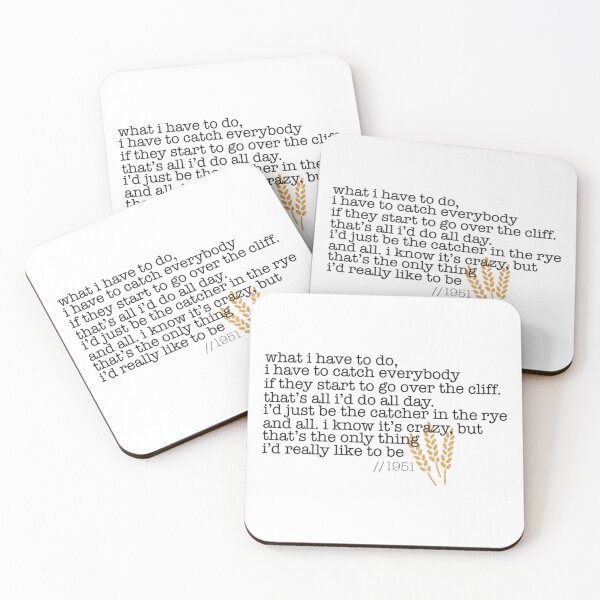 what i have to do,
i have to catch everybody
if they start to go over the cliff.
that's all i'd do all day.
i'd just be the catcher in the
and all. crazy, but
what i have to do,
i have to catch everybody
if they start to go over the cliff.
that's all i'd do all day.
i'd just be the catcher in the rye
and all. i know it's crazy, but
that's the only thing
i'd really like to be
//1951
what i have to do,
i have to catch everybody
if they start to go over the cliff.
that's all i'd do all day.
i'd just be the catcher in the rye
and all. i know it's crazy, but
that's the only thing
i'd really like to be
//1951
what i have to do,
i have to catch everybody
if they start to go over the cliff.
that's all i'd do all day.
i'd just be the catcher in the rye
and all. i know it's crazy, but
that's the only thing
i'd really like to be
//1951